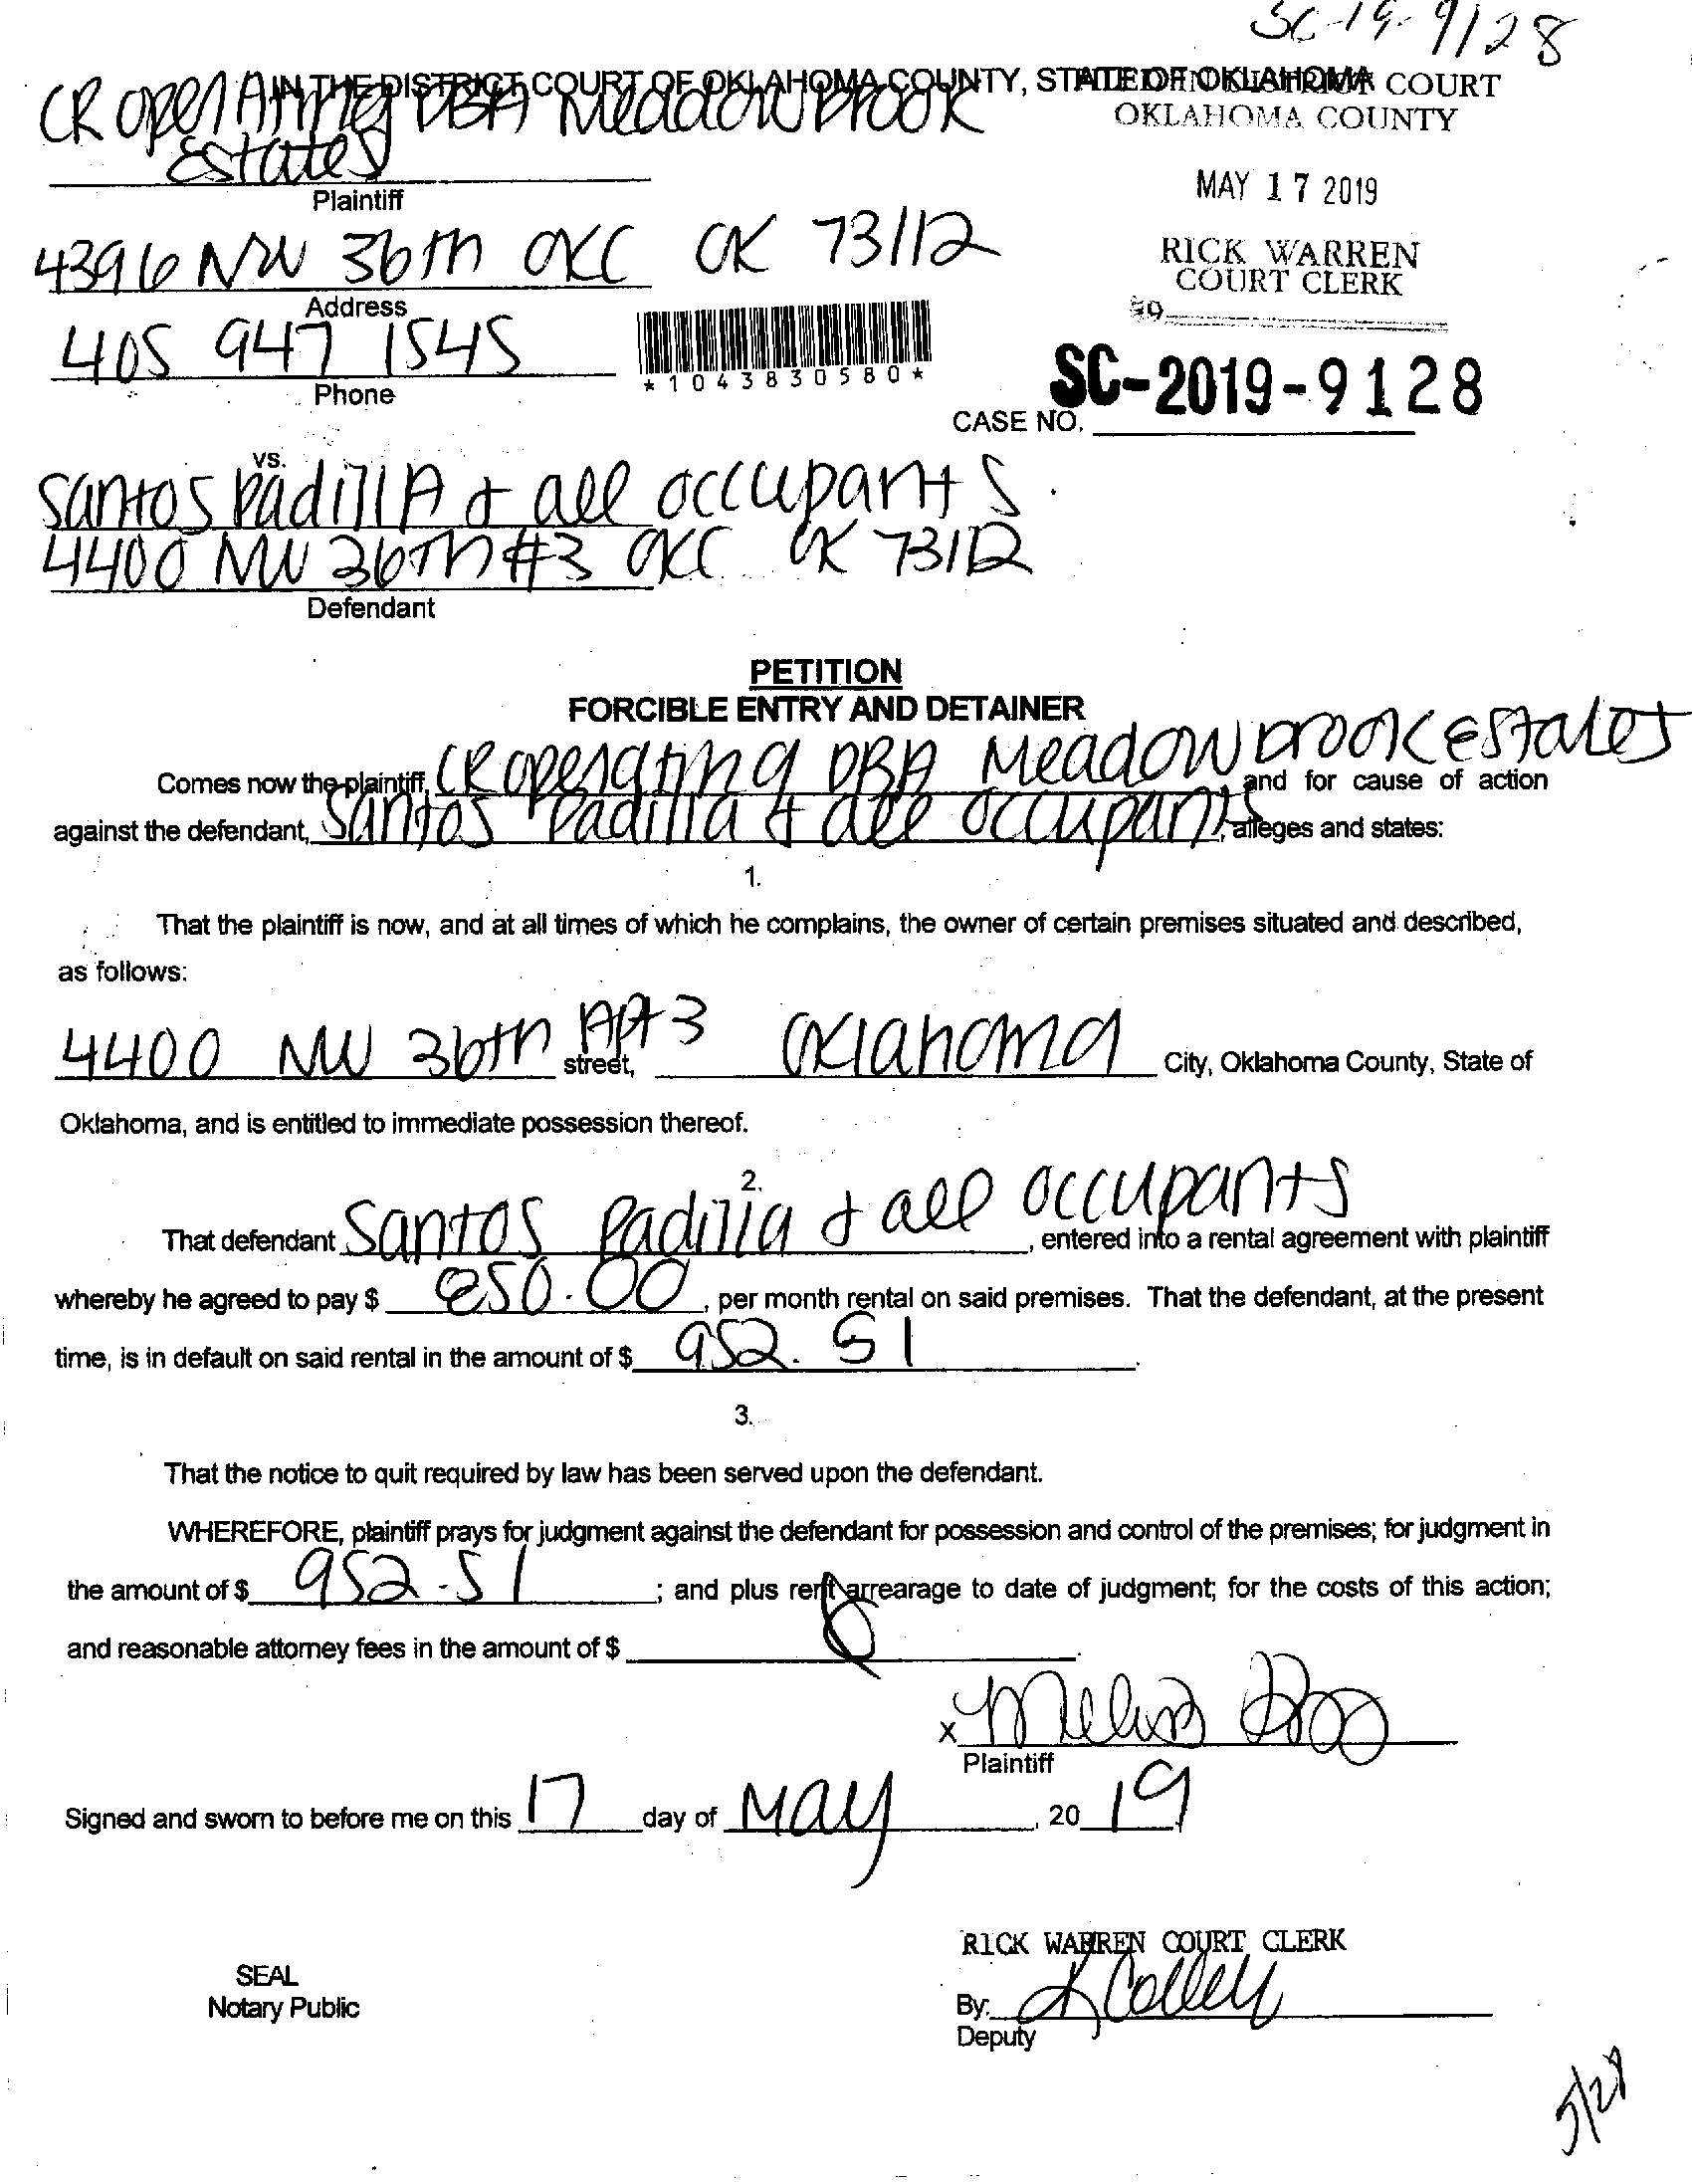 SC-19-9128
IN THE DISTRICT COURT OF OKLAHOMA COUNTY, STATE OF OKLAHOMA
FILED IN DISTRICT COURT
OKLAHOMA COUNTY
CR operating DBA Meadowbrook
Estates
Plaintiff
MAY 17 2019
4396 NW 36th OKC OK 73112
RICK WARREN
COURT CLERK
Address
405 947 1545
Phone
*1043830580*
CASE NO. SC-2019-9128
vs.
Santos Padilla & all occupants
4400 NW 36th #3 OKC OK 73112
Defendant
PETITION
FORCIBLE ENTRY AND DETAINER
Comes now the plaintiff, CR operating DBA Meadowbrook Estates and for cause of action
against the defendant, Santos Padilla & all occupants, alleges and states:
1.
That the plaintiff is now, and at all times of which he complains, the owner of certain premises situated and described,
as follows:
4400 NW 36th Apt 3 street, Oklahoma City, Oklahoma County, State of
Oklahoma, and is entitled to immediate possession thereof.
2.
That defendant Santos Padilla & all occupants, entered into a rental agreement with plaintiff
whereby he agreed to pay $ 850.00, per month rental on said premises. That the defendant, at the present
time, is in default on said rental in the amount of $ 952.51.
3.
That the notice to quit required by law has been served upon the defendant.
WHEREFORE, plaintiff prays for judgment against the defendant for possession and control of the premises; for judgment in
the amount of $ 952.51; and plus rent arrearage to date of judgment; for the costs of this action;
and reasonable attorney fees in the amount of $
x
Plaintiff
Signed and sworn to before me on this 17 day of May, 2019
RICK WARREN COURT CLERK
SEAL
Notary Public
By: K Colley
Deputy
5/28